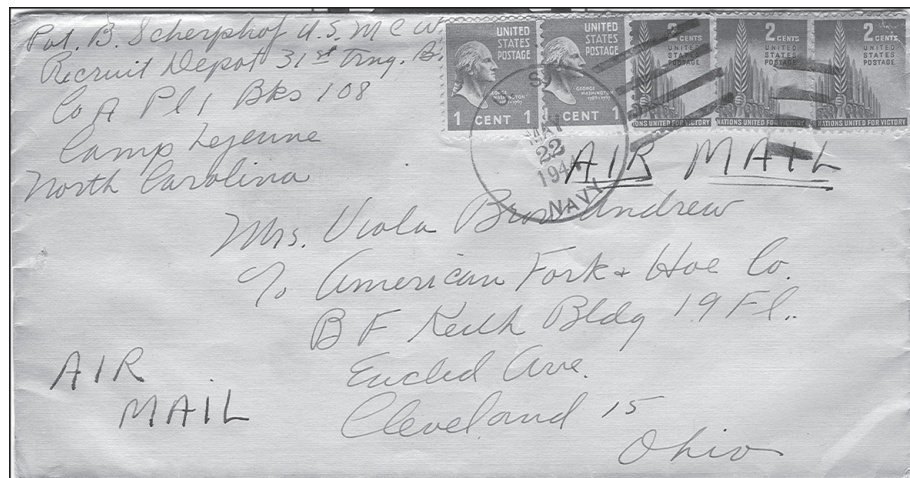 Pvt. B. Scherphof U.S. M C W
Recruit Depot 31st Trng. B.
Co A Pl 1 Bks 108
Camp Lejeune
North Carolina
UNITED STATES POSTAGE
GEORGE WASHINGTON
1 CENT 1
UNITED STATES POSTAGE
GEORGE WASHINGTON
1 CENT 1
2 CENTS
UNITED STATES POSTAGE
NATIONS UNITED FOR VICTORY
2 CENTS
UNITED STATES POSTAGE
NATIONS UNITED FOR VICTORY
2 CENTS
UNITED STATES POSTAGE
NATIONS UNITED FOR VICTORY
U. S.
MAY
22
1944
NAVY
AIR MAIL
Mrs. Viola Andrew
c/o American Fork + Hoe Co.
B F Keith Bldg 19 Fl.
Euclid Ave.
Cleveland 15
Ohio
AIR
MAIL